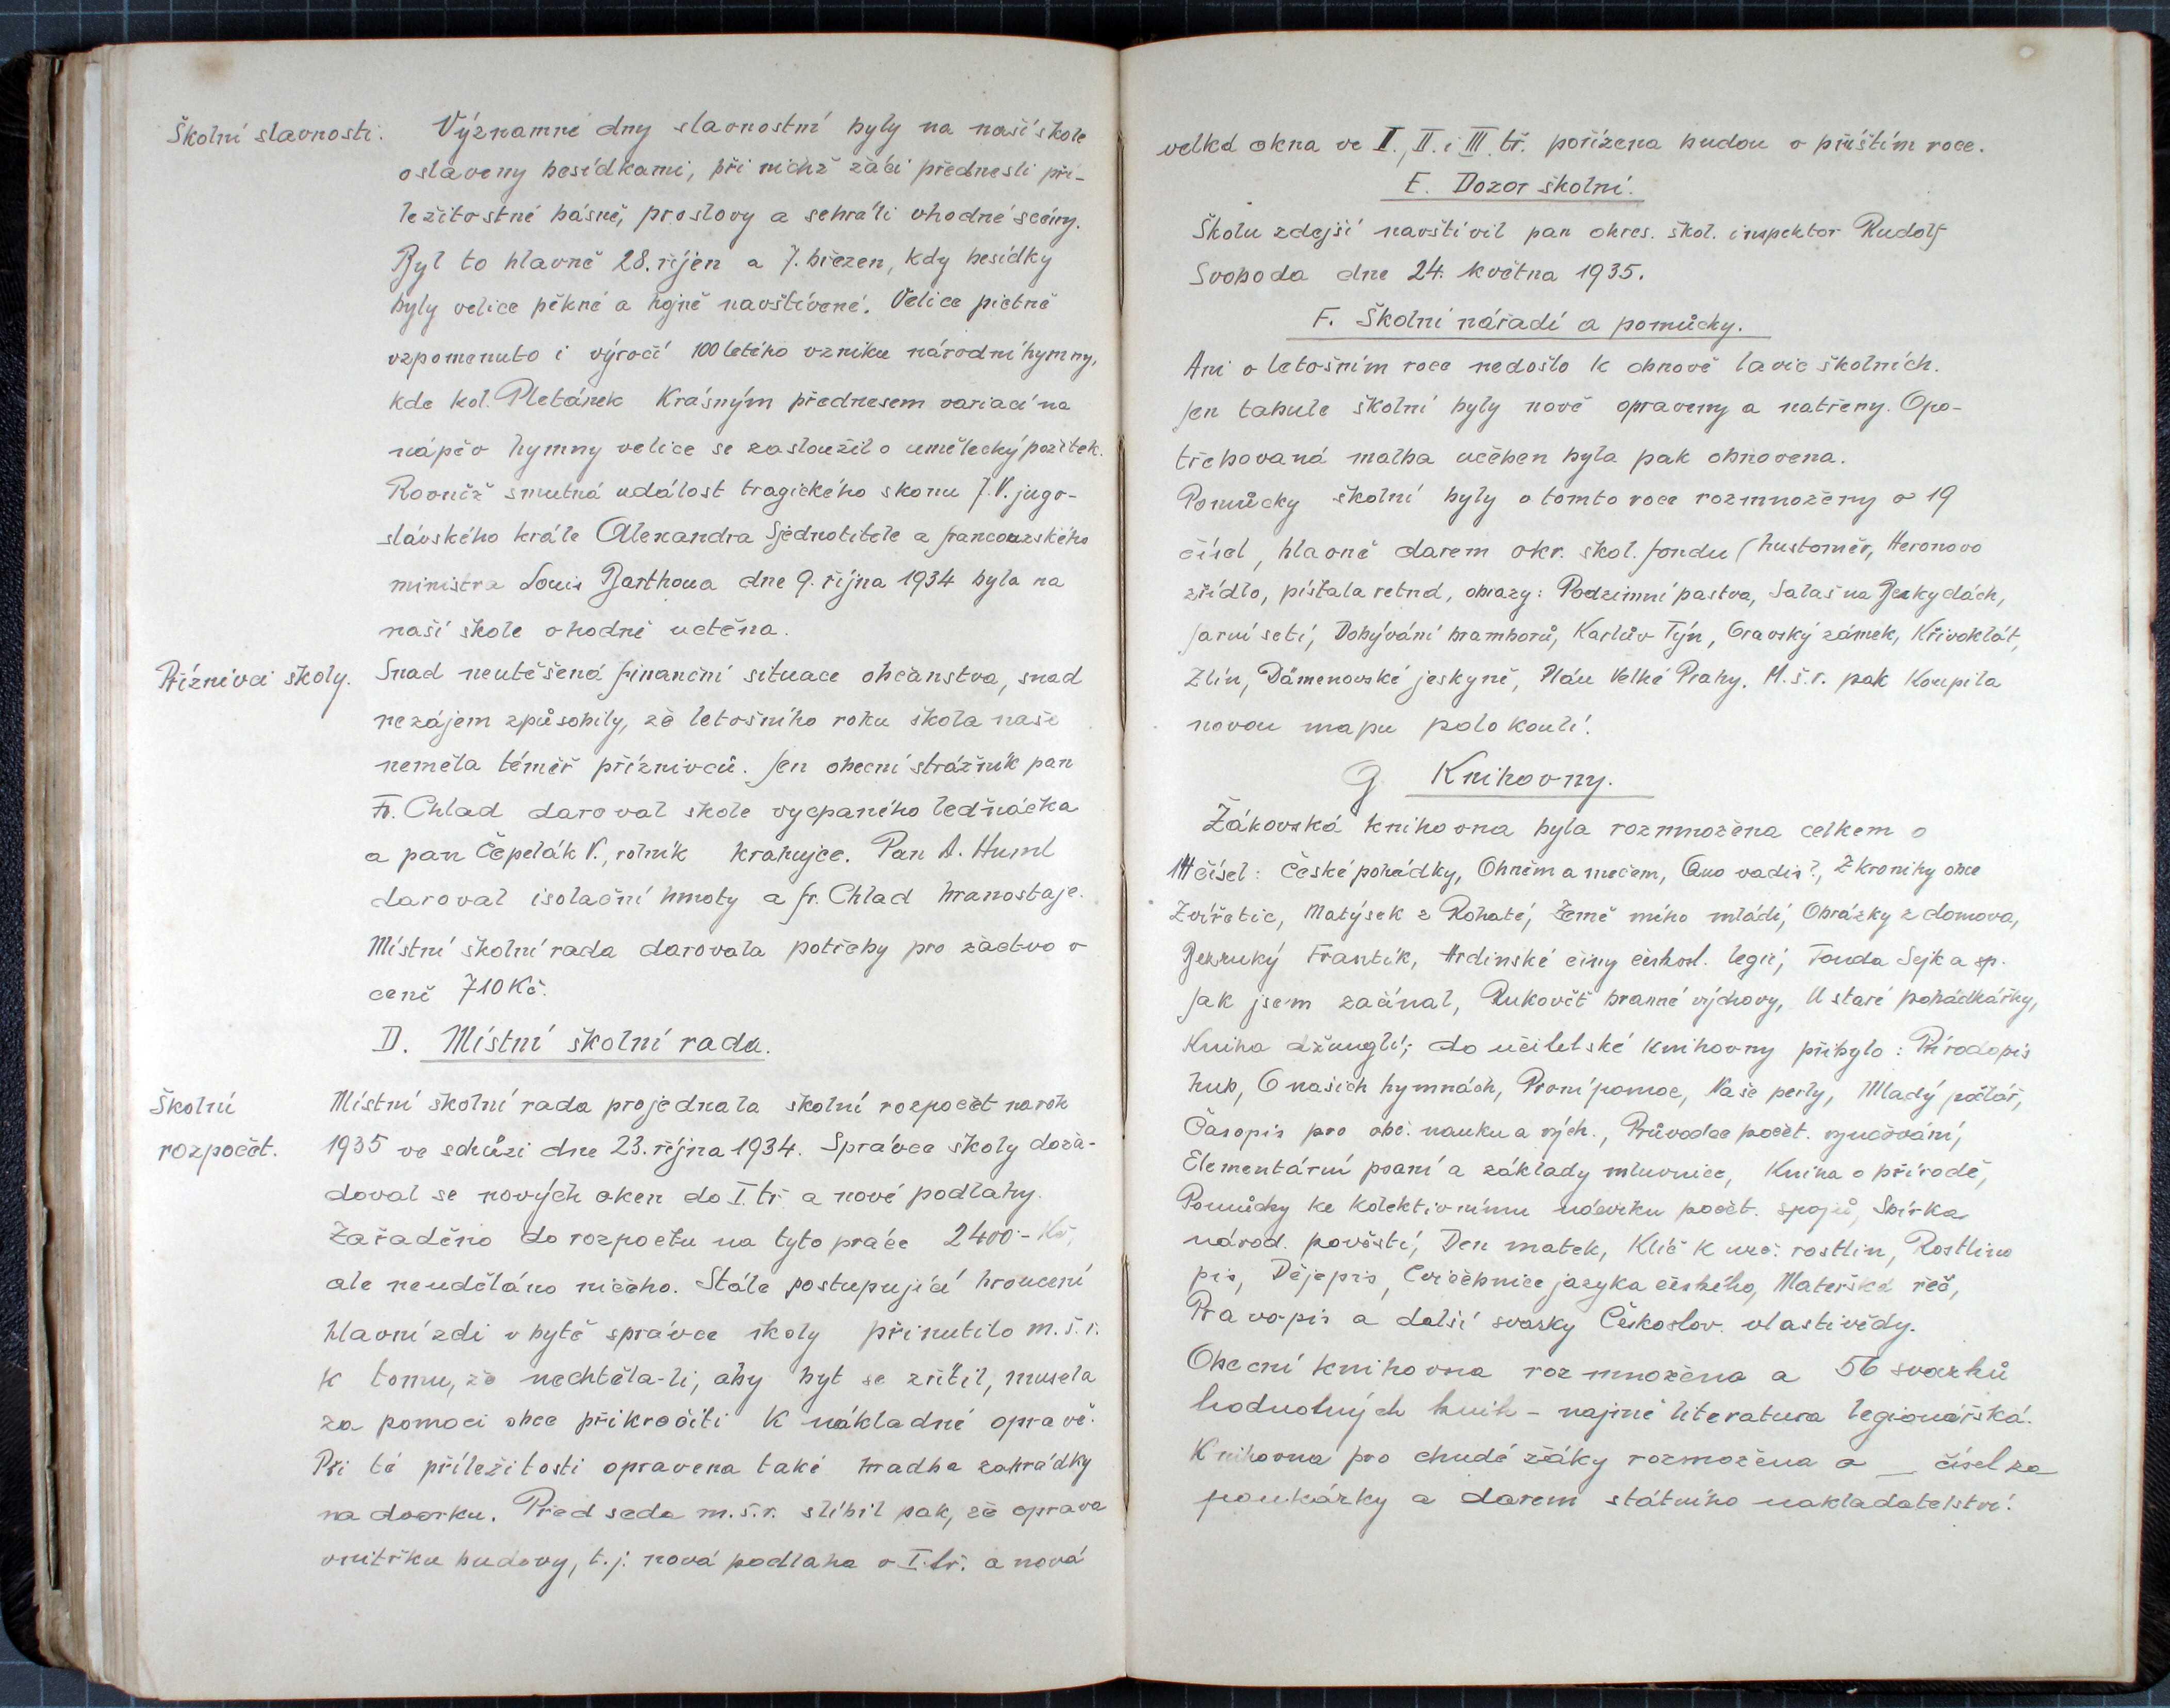 Školní slavnosti. Významné dny slavnostní byly na naší škole
oslaveny besídkami, při nichž žáci přednesli pří-
ležitostné básně, proslovy a sehráli vhodné scény.
Byl to hlavně 28. říjen a 7. březen, kdy besídky
byly velice pěkné a hojně navštívené. Velice pietně
vzpomenuto i výročí 100letého vzniku národní hymny,
kde kol. Pletánek krásným přednesem variací na
nápěv hymny velice se zasloužil o umělecký požitek.
Rovněž smutná událost tragického skonu J. V. jugo-
slávského krále Alexandra Sjednotitele a francouzského
ministra Louis Barthoua dne 9. října 1934 byla na
naší škole vhodně uctěna.
Příznivci školy. Snad neutěšená finanční situace občanstva, snad
nezájem způsobily, že letošního roku škola naše
neměla téměř příznivců. Jen obecní strážník pan
Fr. Chlad daroval škole vycpaného ledňáčka
a pan Čepelák V., rolník krahujce. Pan A. Huml
daroval isolační hmoty a fr. Chlad hranostaje.
Místní školní rada darovala potřeby pro žactvo v
ceně 710 Kč.
D. Místní školní rada.
Školní Místní školní rada projednala školní rozpočet na rok
rozpočet. 1935 ve schůzi dne 23. října 1934. Správce školy dožá-
doval se nových oken do I. tř. a nové podlahy.
Zařaděno do rozpočtu na tyto práce 2400.- Kč,
ale neuděláno ničeho. Stále postupující hroucení
hlavní zdi v bytě správce školy přinutilo m. š. r.
k tomu, že nechtěla-li, aby byt se zřítil, musela
za pomoci obce přikročiti k nákladné opravě.
Při té příležitosti opravena také hradba zahrádky
na dvorku. Předseda m. š. r. slíbil pak, že oprava
vnitřku budovy, t. j. nová podlaha v I. tř. a nová
velká okna ve I., II. i III. tř. pořízena budou v příštím roce.
E. Dozor školní.
Školu zdejší navštívil pan okres. škol. inspektor Rudolf
Svoboda dne 24. května 1935.
F. Školní nářadí a pomůcky.
Ani v letošním roce nedošlo k obnově lavic školních.
Jen tabule školní byly nově opraveny a natřeny. Opo-
třebovaná malba učeben byla pak obnovena.
Pomůcky školní byly v tomto roce rozmnoženy o 19
čísel, hlavně darem okr. škol. fondu (hustoměr, Heronovo
zřídlo, píšťala retná, obrazy: Podzimní pastva, Salaš na Beskydách,
Jarní setí, Dobývání bramborů, Karlův Týn, Oravský zámek, Křivoklát,
Zlín, Dämenovské jeskyně, Plán Velké Prahy. M. š. r. pak koupila
novou mapu polokoulí.
G Knihovny.
Žákovská knihovna byla rozmnožena celkem o
14 čísel: České pohádky, Ohněm a mečem, Quo vadis?, Z kroniky obce
Zvířetic, Matýsek z Rohaté, Země mého mládí, Obrázky z domova,
Bezruký Frantík, Hrdinské činy českosl. legií, Fouda Sejk a sp.
Jak jsem začínal, Rukověť branné výchovy, U staré pohádkářky,
Kniha džunglí; do učitelské knihovny přibylo: Přírodopis
hub, O našich hymnách, První pomoc, Naše perly, Mladý počtář,
Časopis pro obč. nauku a vých., Průvodce počet. vyučování,
Elementární psaní a základy mluvnice, Kniha o přírodě,
Pomůcky ke kolektivnímu nácviku počet. spojů, Sbírka
národ. pověstí, Den matek, Klíč k urč. rostlin, Rostlino
pis, Dějepis, Cvičebnice jazyka českého, Mateřská řeč,
Pravopis a další svazky Českoslov. vlastivědy.
Obecní knihovna rozmnožena o 56 svazků
hodnotných knih - najmě literatura legionářská.
Knihovna pro chudé žáky rozmožena o _ čísel za
poukázky a darem státního nakladatelství.